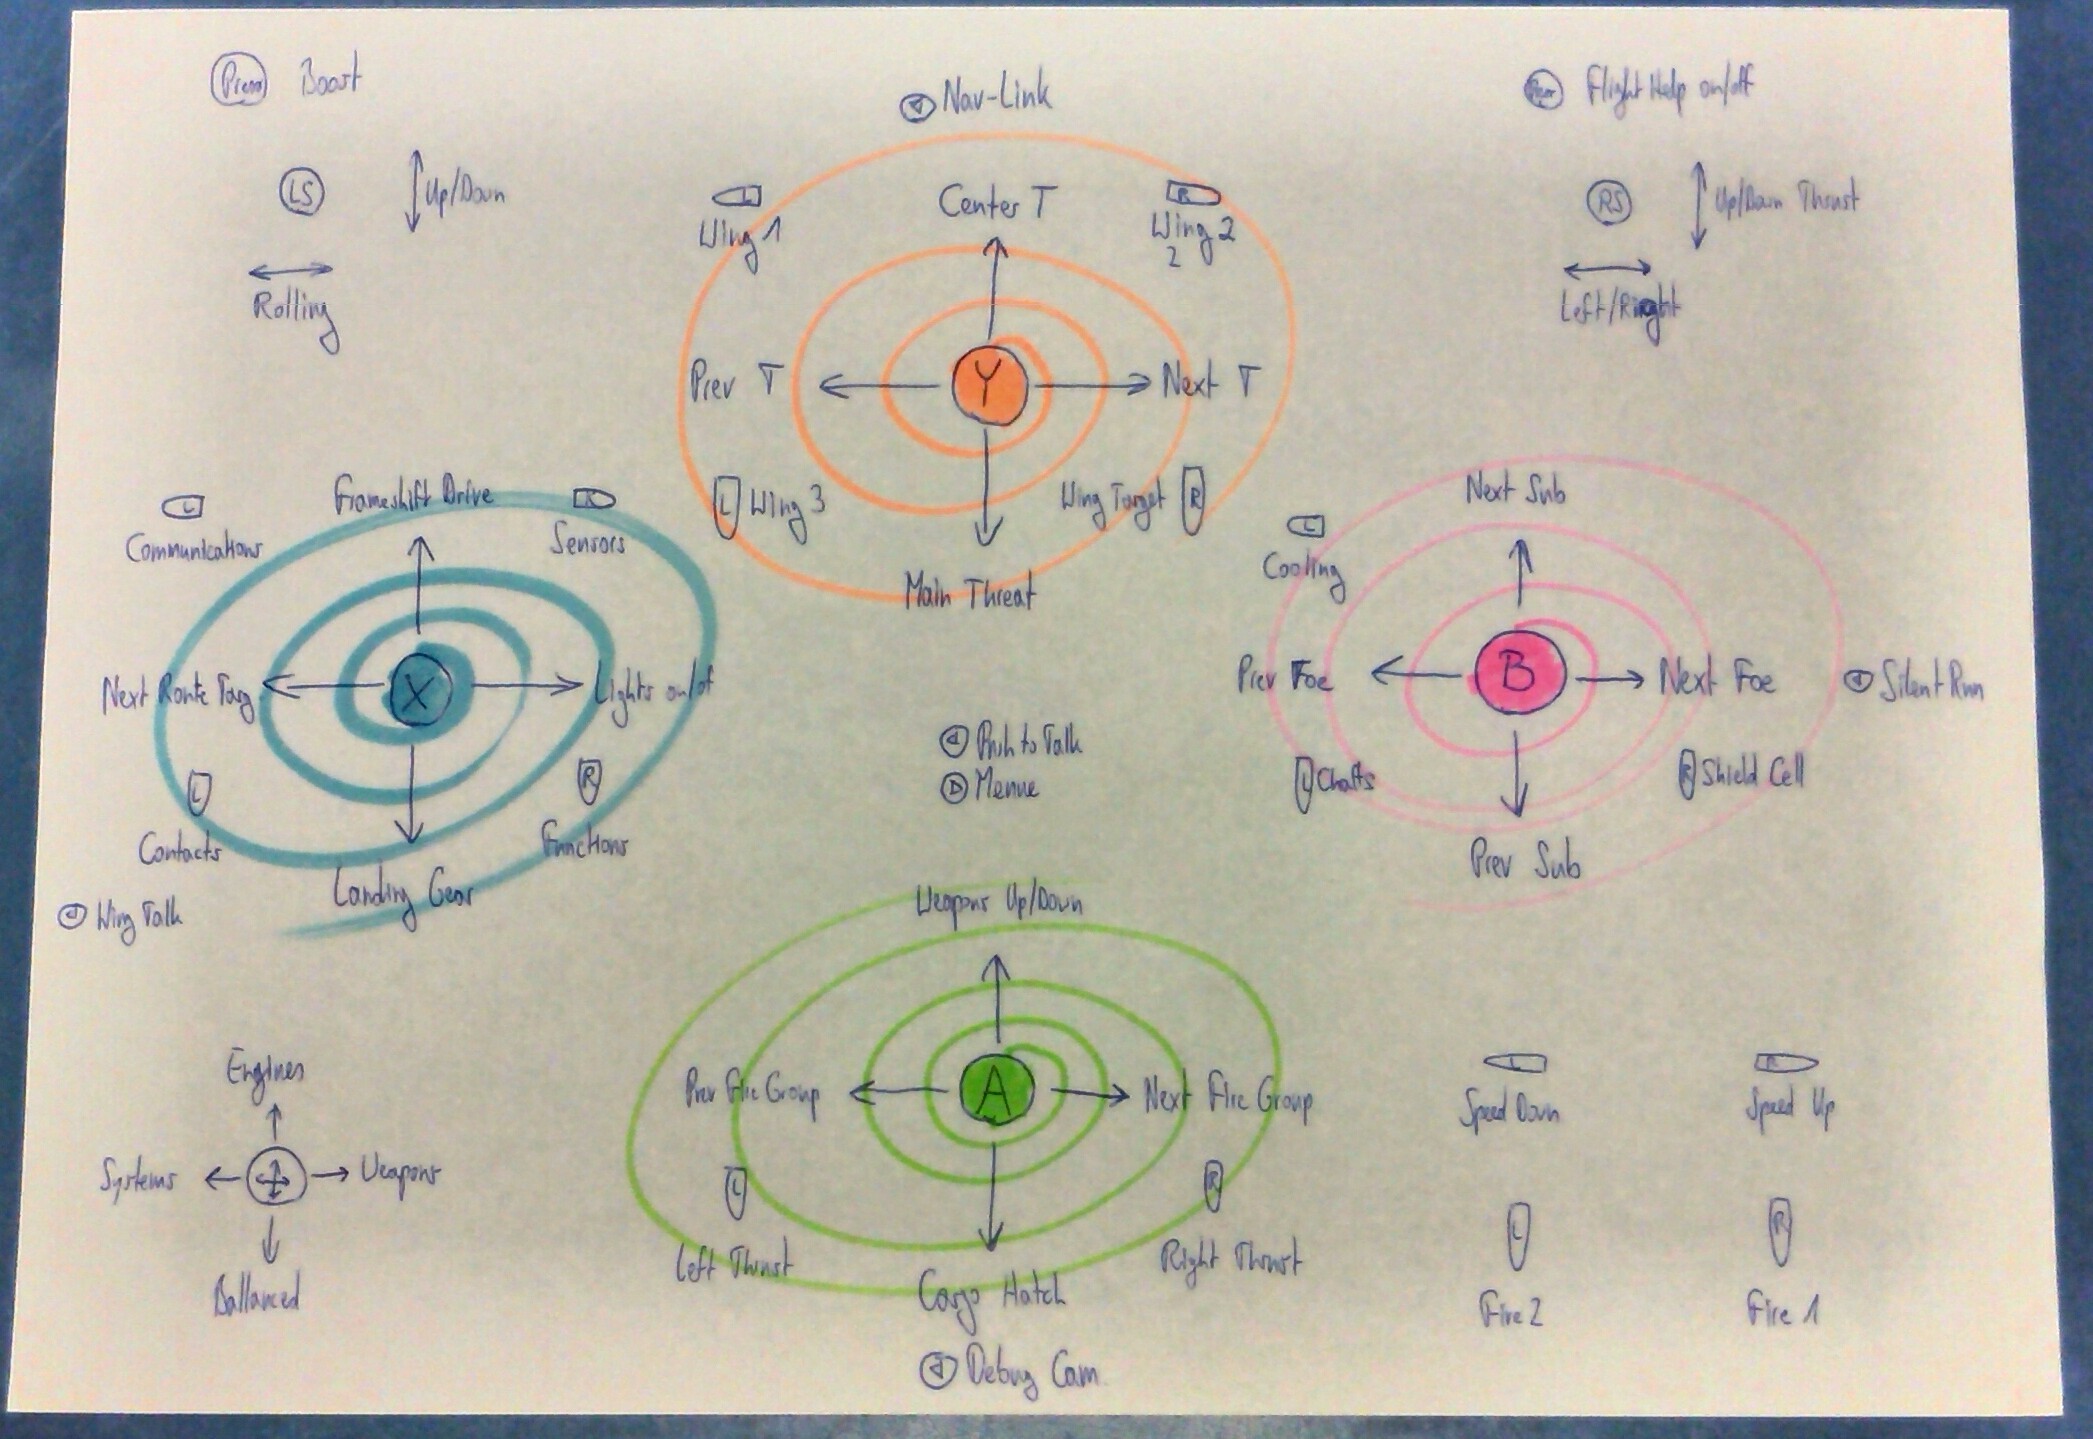 Press Boost
LS
Up/Down
Rolling
Nav-Link
L
Wing 1
Center T
R
Wing 2
2
Prev T
Y
Next T
L Wing 3
Wing Target R
Main Threat
Press Flight Help on/off
RS
Up/Down Thrust
Left/Right
L
Communications
Frameshift Drive
R
Sensors
Next Route Targ
X
Lights on/of
L
Contacts
R
Functions
Landing Gear
Wing Talk
Push to Talk
Menue
Next Sub
L
Cooling
Prev Foe
B
Next Foe
Silent Run
L Chaffs
R Shield Cell
Prev Sub
Weapons Up/Down
Prev Fire Group
A
Next Fire Group
L
Left Thrust
R
Right Thrust
Cargo Hatch
Debug Cam
Engines
Systems
Weapons
Ballanced
L
Speed Down
R
Speed Up
L
Fire 2
R
Fire 1